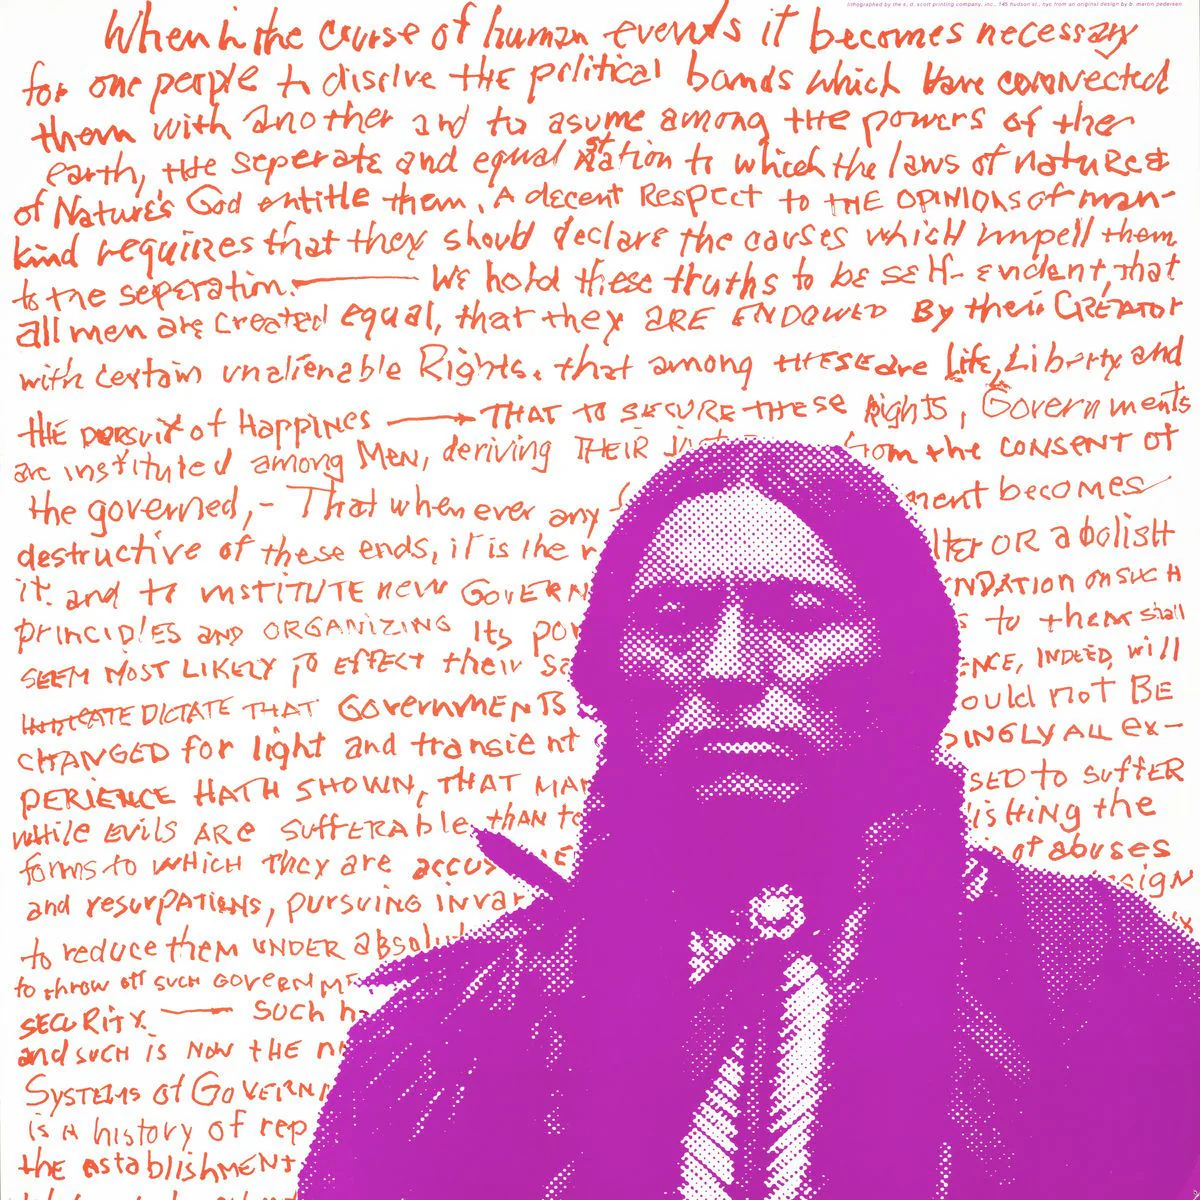 lithographed by the k. d. scott printing company, inc., 145 hudson st., nyc from an original design by b. martin pedersen
When in the course of human events it becomes necessary
for one people to disolve the political bands which have connected
them with another and to asume among the powers of the
earth, the seperate and equal station to which the laws of nature &
of Nature's God entitle them, A decent Respect to the OPINIONS of man-
kind requires that they should declare the causes which impell them
to the seperation. — We hold these truths to be self-evident, that
all men are created equal, that they ARE ENDOWED By their CREATOR
with certain unalienable Rights, that among these are Life, Liberty and
tHE pursuit of Happines — THAT to SECURE these Rights, Governments
are instituted among Men, deriving THEIR just from the CONSENT of
the governed, - That when ever any ment becomes
destructive of these ends, it is the r lter OR abolish
it. and to INSTITUTE new GOVERN NDATION on SUCH
principles AND ORGANIZING Its pow s to them shall
SEEM MOST LIKELY To EFFECT their sa ENCE, INDEED, will
DICTATE THAT GovernmENTS ould not BE
CHANGED for light and transient DINGLY ALL EX-
PERIENCE HATH SHOWN, THAT MAN SED to SUFFER
while EVILS ARE SUFFERAble, tHAN to ISHING the
forms to WHICH They are accus of abuses
and resurpations, pursuing invar sign
to reduce them UNDER absolut
to throw off SUCH GOVERNME
SECURITY. — SUCH ha
and SUCH is NOW tHE n
SYSTEMS of GOVERNM
is A history of rep
the establisHMENT